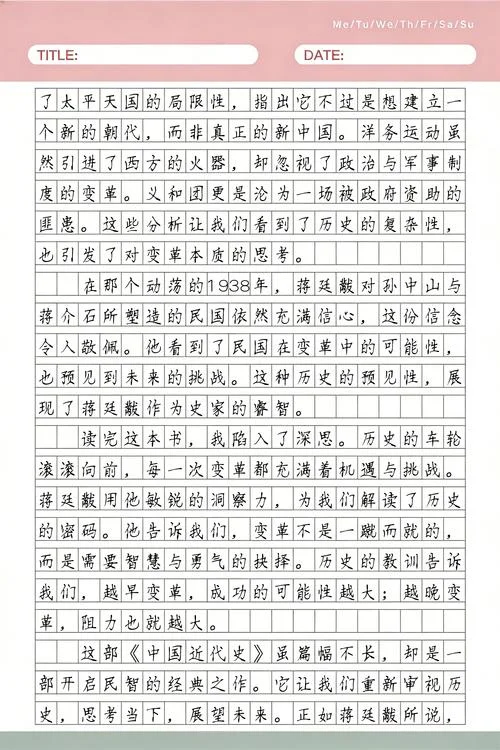 Me/Tu/We/Th/Fr/Sa/Su
TITLE: DATE:
了太平天国的局限性，指出它不过是想建立一
个新的朝代，而非真正的新中国。洋务运动虽
然引进了西方的火器，却忽视了政治与军事制
度的变革。义和团更是沦为一场被政府资助的
匪患。这些分析让我们看到了历史的复杂性，
也引发了对变革本质的思考。
在那个动荡的1938年，蒋廷黻对孙中山与
蒋介石所塑造的民国依然充满信心，这份信念
令人敬佩。他看到了民国在变革中的可能性，
也预见到未来的挑战。这种历史的预见性，展
现了蒋廷黻作为史家的睿智。
读完这本书，我陷入了深思。历史的车轮
滚滚向前，每一次变革都充满着机遇与挑战。
蒋廷黻用他敏锐的洞察力，为我们解读了历史
的密码。他告诉我们，变革不是一蹴而就的，
而是需要智慧与勇气的抉择。历史的教训告诉
我们，越早变革，成功的可能性越大；越晚变
革，阻力也就越大。
这部《中国近代史》虽篇幅不长，却是一
部开启民智的经典之作。它让我们重新审视历
史，思考当下，展望未来。正如蒋廷黻所说，